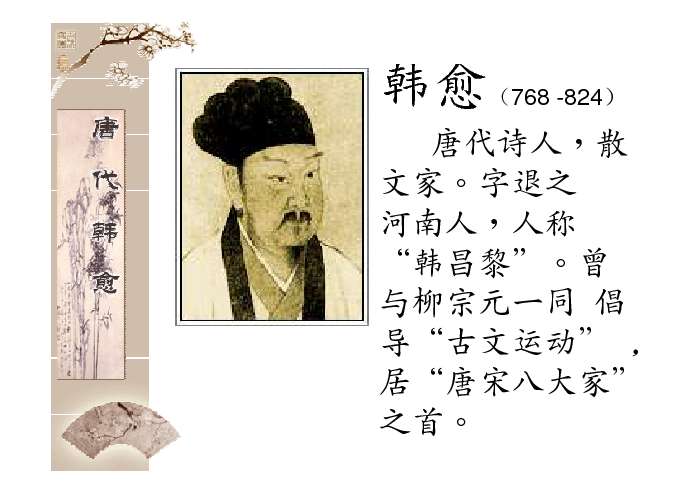 唐代韩愈
韩愈（768 -824）
唐代诗人，散
文家。字退之
河南人，人称
“韩昌黎”。曾
与柳宗元一同 倡
导“古文运动” ，
居“唐宋八大家”
之首。